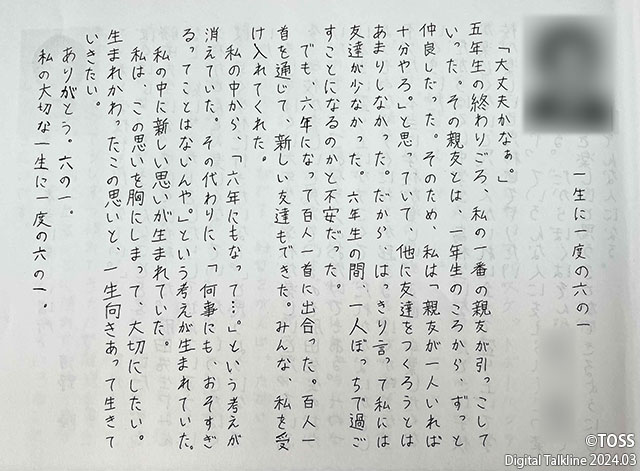 一生に一度の六の一
「大丈夫かなぁ。」
五年生の終わりごろ、私の一番の親友が引っこして
いった。その親友とは、一年生のころから、ずっと
仲良しだった。そのため、私は「親友が一人いれば
十分やろ。」と思っていて、他に友達をつくろうとは
あまりしなかった。だから、はっきり言って私には
友達が少なかった。六年生の間、一人ぼっちで過ご
すことになるのかと不安だった。
でも、六年になって百人一首に出合った。百人一
首を通じて、新しい友達もできた。みんな、私を受
け入れてくれた。
私の中から、「六年にもなって…。」という考えが
消えていた。その代わりに、「何事にも、おそすぎ
るってことはないんや。」という考えが生まれていた。
私の中に新しい思いが生まれていた。
私は、この思いを胸にしまって、大切にしたい。
生まれかわったこの思いと、一生向きあって生きて
いきたい。
ありがとう。六の一。
私の大切な一生に一度の六の一。
©TOSS
Digital Talkline 2024.03